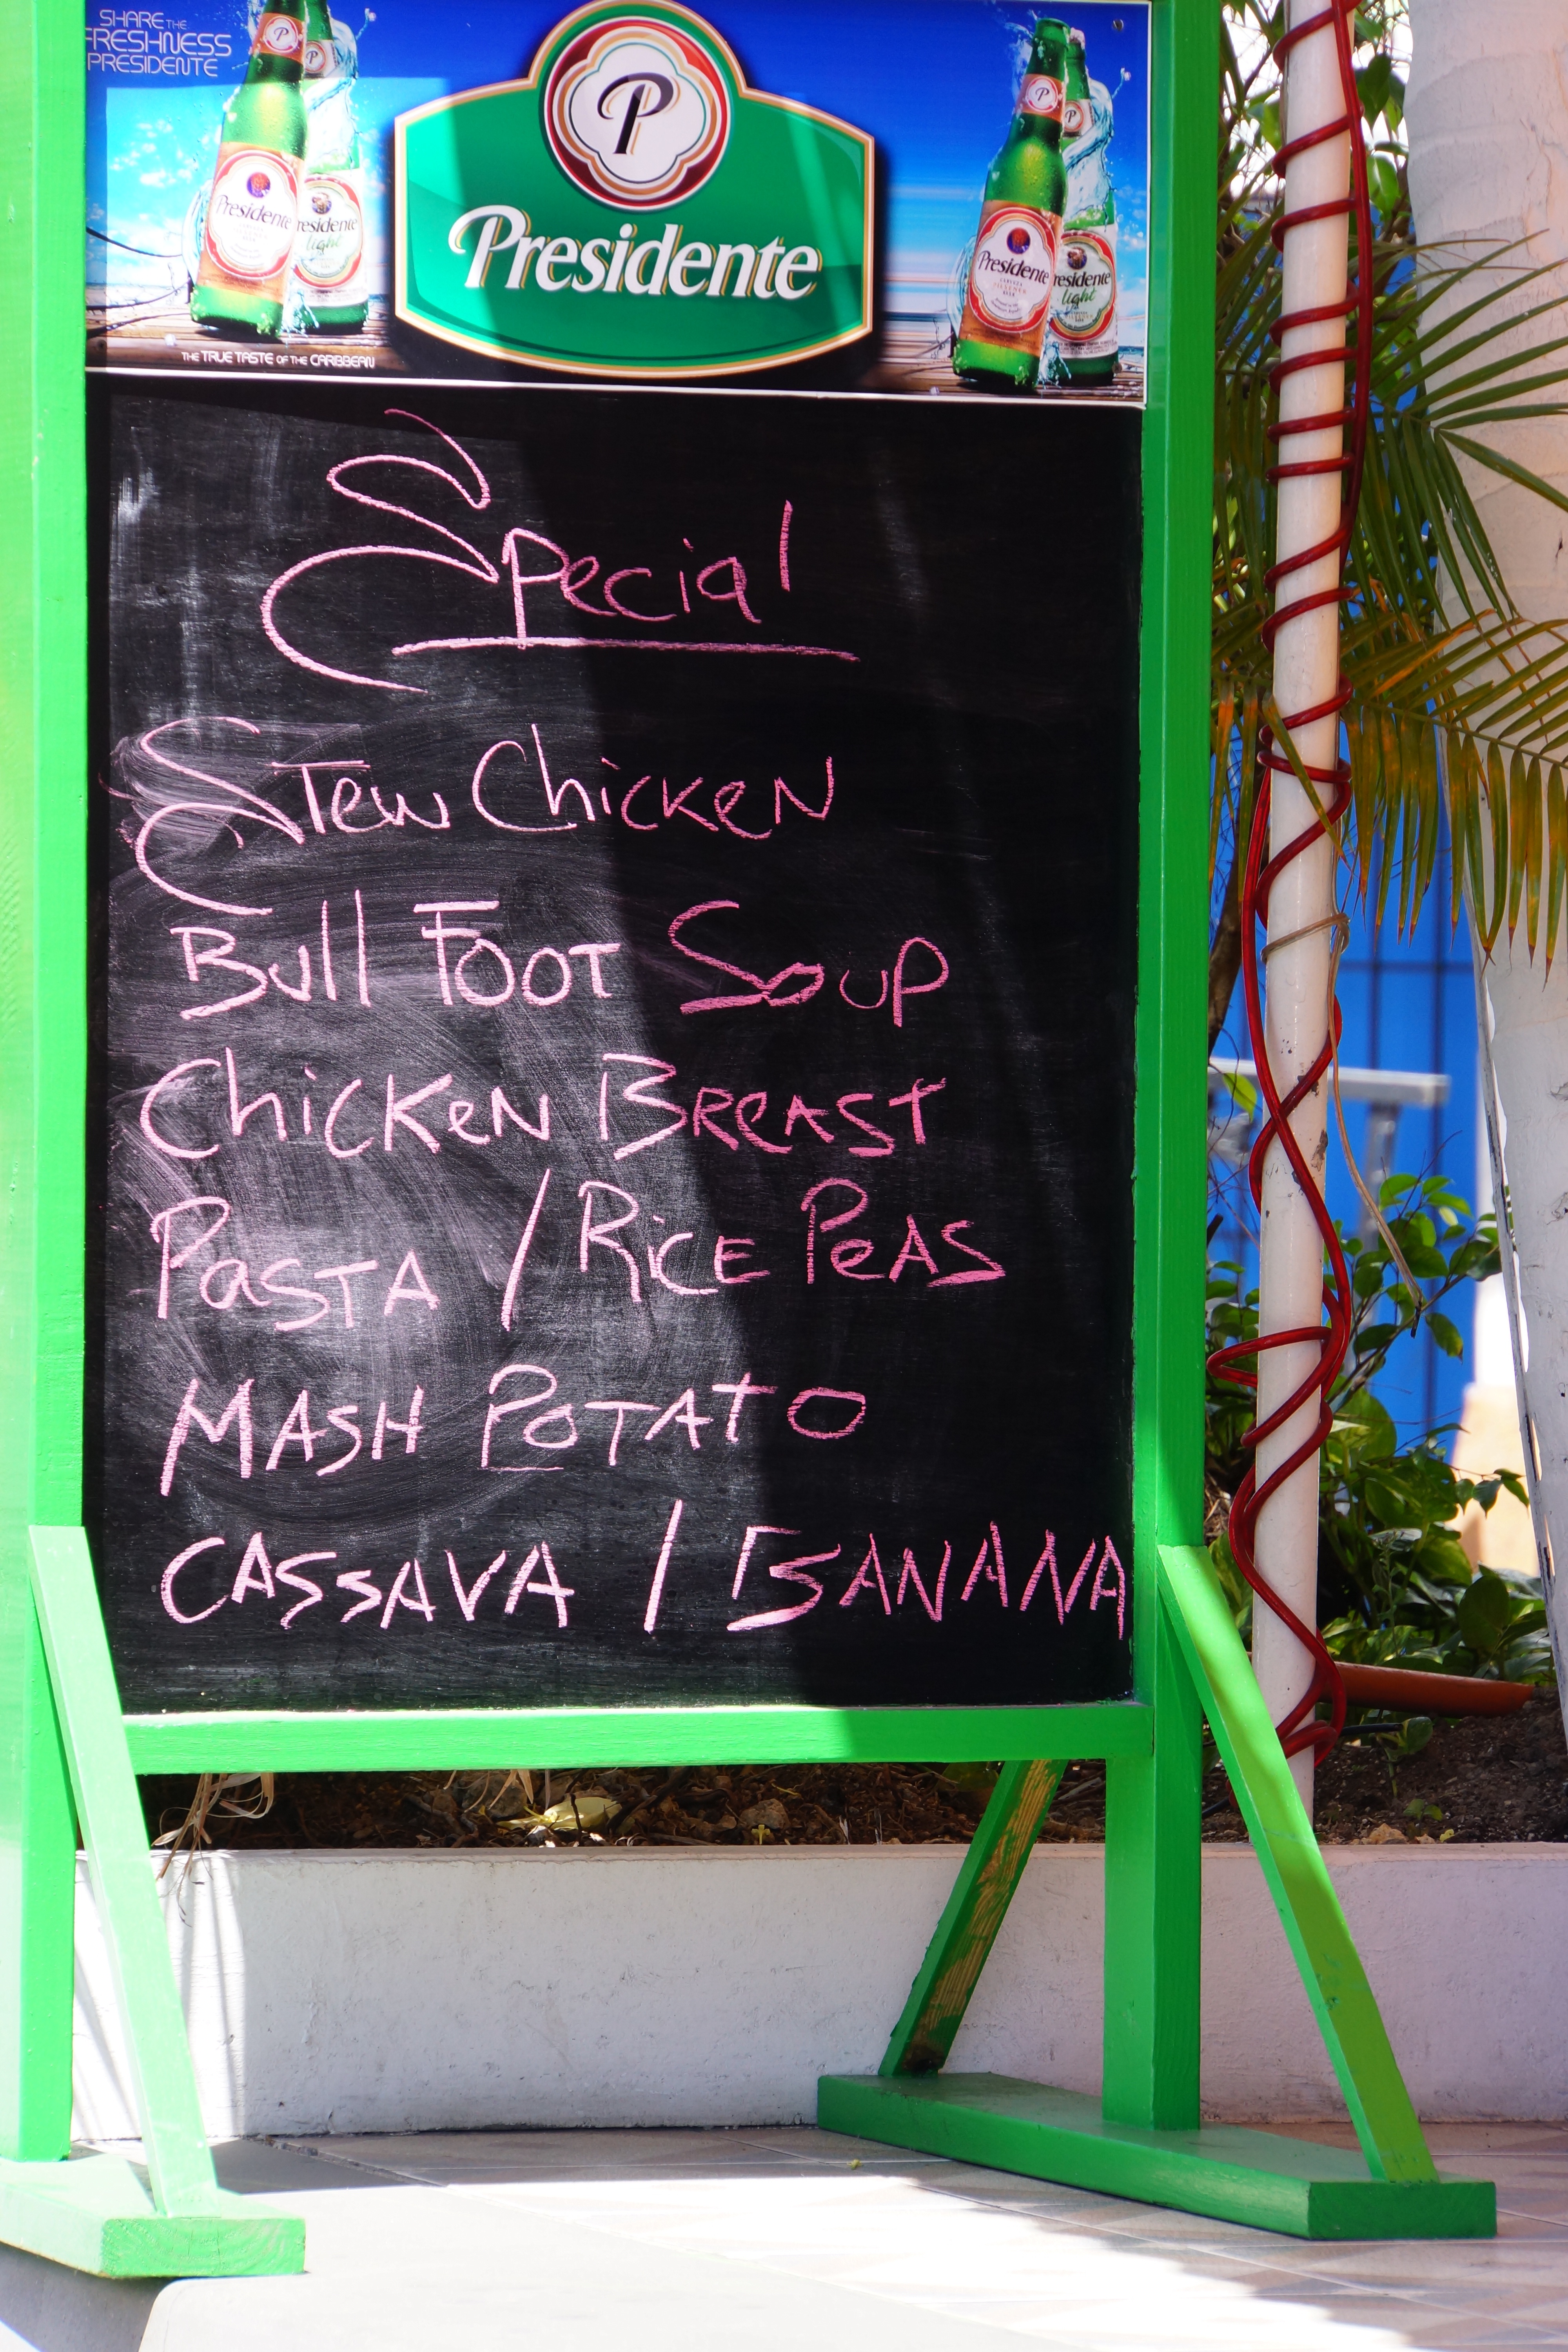 SHARE THE
FRESHNESS
PRESIDENTE
P
Presidente
Presidente
Presidente
light
THE TRUE TASTE OF THE CARIBBEAN
Presidente
Presidente
light
Special
STew ChicKeN
Bull FOOT Soup
ChicKeN BReAST
PaSTA / RicE PeAS
MASH POTATO
CASSAVA / BANANA